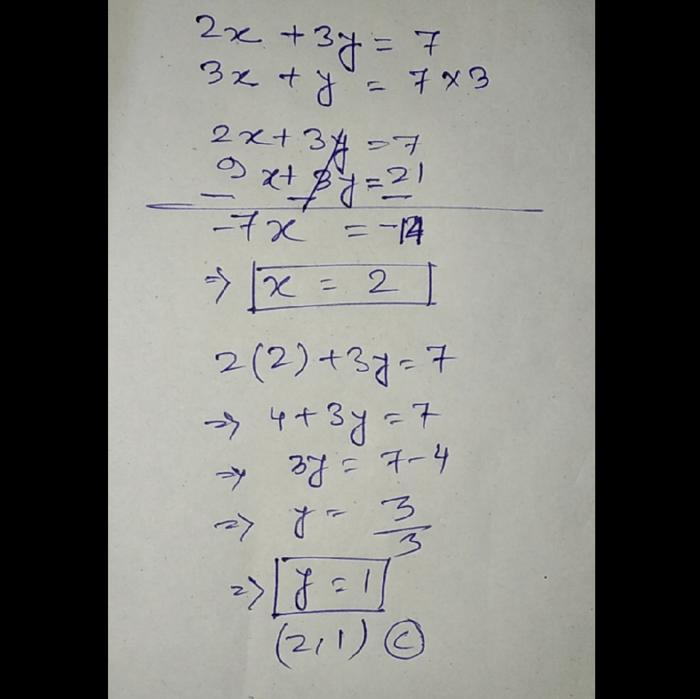 2x + 3y = 7
3x + y = 7 × 3
2x + 3y = 7
9x + 3y = 21
- - -
-7x = -14
⇒ x = 2
2(2) + 3y = 7
⇒ 4 + 3y = 7
⇒ 3y = 7 - 4
⇒ y = 3/3
⇒ y = 1
(2,1) ⓒ